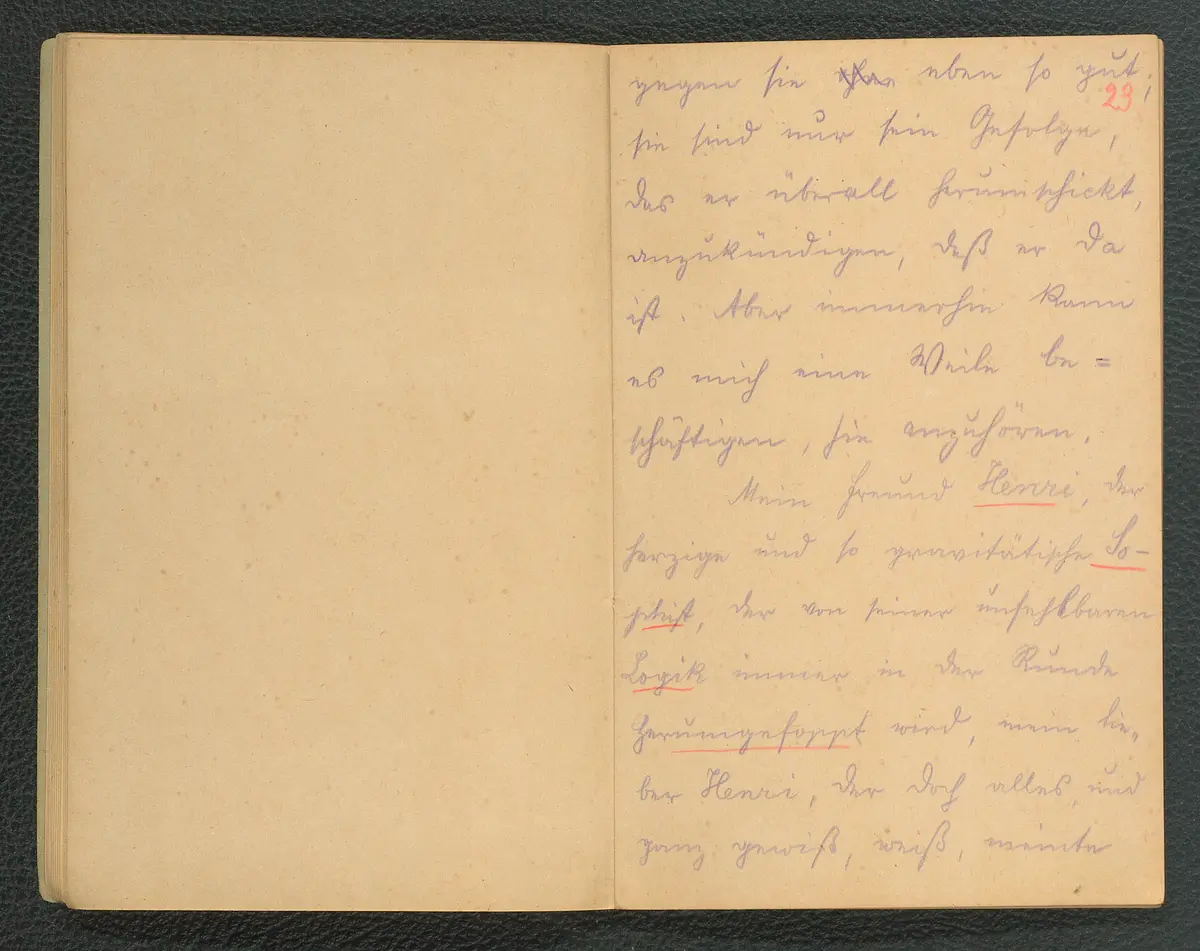 gegen sie eben so gut;
23
sie sind nur sein Gefolge,
das er überall herumschickt,
anzukündigen, daß er da
ist. Aber immerhin kann
es mich eine Weile be=
schäftigen, sie anzuhören.
Mein Freund Henri, der
herzige und so gravitätische So-
phist, der von seiner unfehlbaren
Logik immer in der Runde
herumgefoppt wird, mein lie-
ber Henri, der doch alles, und
ganz gewiß, weiß, meinte